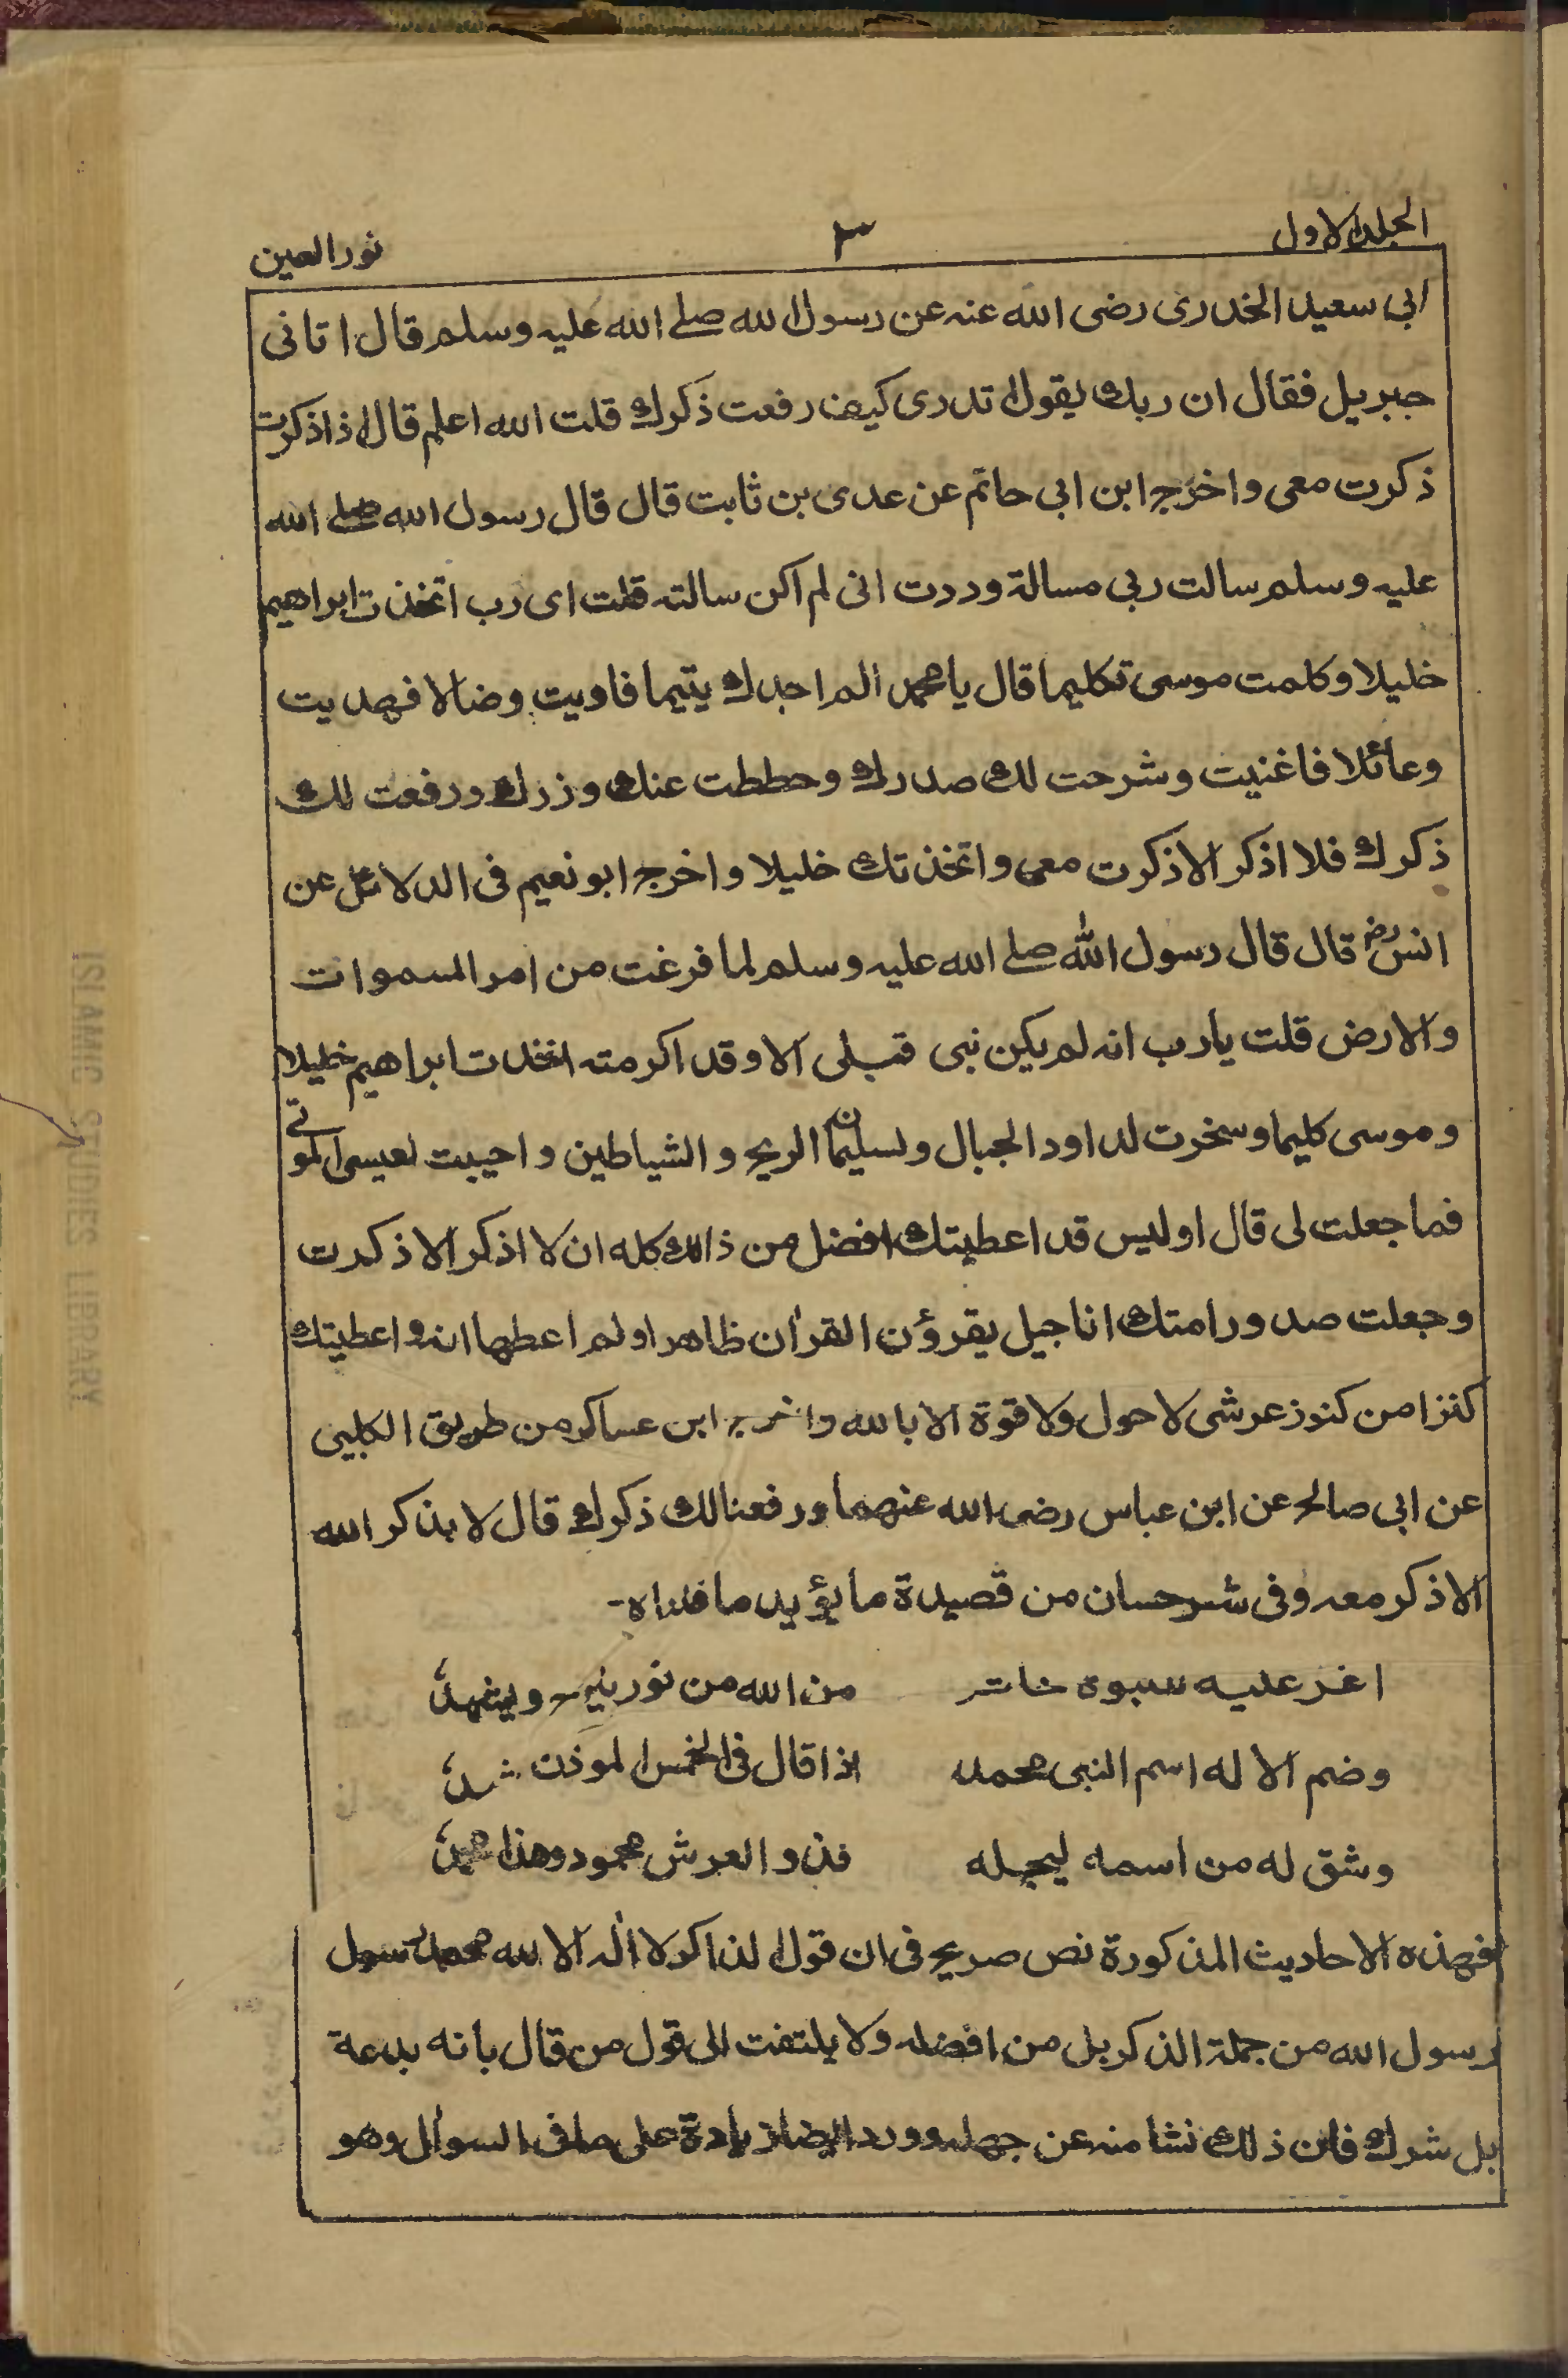 الجلد الاول
٣
نور العين
ابى سعيد الخدرى رضى الله عنه عن رسول الله صلے الله عليه وسلم قال اتانى
جبريل فقال ان ربك يقول تدرى كيف رفعت ذكرك قلت الله اعلم قال اذا ذكرت
ذكرت معى واخرج ابن ابى حاتم عن عدى بن ثابت قال قال رسول الله صلے الله
عليه وسلم سالت ربى مسالة وددت انى لم اكن سالته قلت اى رب اتخذت ابراهيم
خليلا وكلمت موسى تكليما قال يا محمد الم اجدك يتيما فاويت وضالا فهديت
وعائلا فاغنيت وشرحت لك صدرك وحططت عنك وزرك ورفعت لك
ذكرك فلا اذكر الا ذكرت معى واتخذتك خليلا واخرج ابو نعيم فى الدلائل عن
انس رض قال قال رسول الله صلے الله عليه وسلم لما فرغت من امر السموات
والارض قلت يا رب انه لم يكن نبى قبلى الا وقد اكرمته اتخذت ابراهيم خليلا
وموسى كليما وسخرت لداود الجبال ولسليمان الريح والشياطين واحييت لعيسى الموتى
فما جعلت لى قال اوليس قد اعطيتك افضل من ذالك كله ان لا اذكر الا ذكرت
وجعلت صدور امتك اناجيل يقرؤن القرأن ظاهرا ولم اعطها امة واعطيتك
كنزا من كنوز عرشى لا حول ولا قوة الا بالله واخرج ابن عساكر من طريق الكلبى
عن ابى صالح عن ابن عباس رضى الله عنهما ورفعنا لك ذكرك قال لا يذكر الله
الا ذكر معه وفى شرحسان من قصيدة ما يؤيد ما قلناه-
اغر عليه للنبوة خاتم من الله من نور يلوح ويشهدُ
وضم الاله اسم النبى محمد اذا قال فى الخمس الموذن اشهدُ
وشق له من اسمه ليجله فذو العرش محمود وهذا محمدُ
فهذه الاحاديث المذكورة نص صريح فى ان قول الذاكر لا اله الا الله محمد رسول
رسول الله من جملة الذكر بل من افضله ولا يلتفت الى قول من قال بانه بدعة
بل شرك فان ذلك نشا منه عن جهله وورد ايضا زيادة على ما فى السوال وهو
ISLAMIC STUDIES LIBRARY